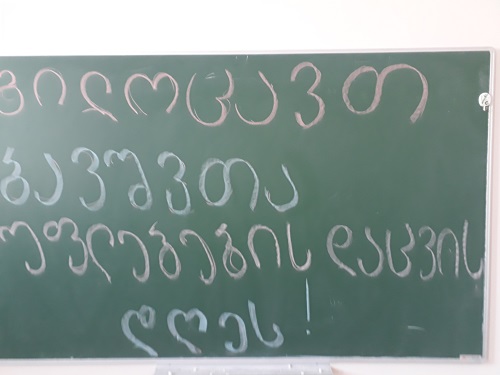 გილოცავთ
ბავშვთა
უფლებების დაცვის
დღეს!